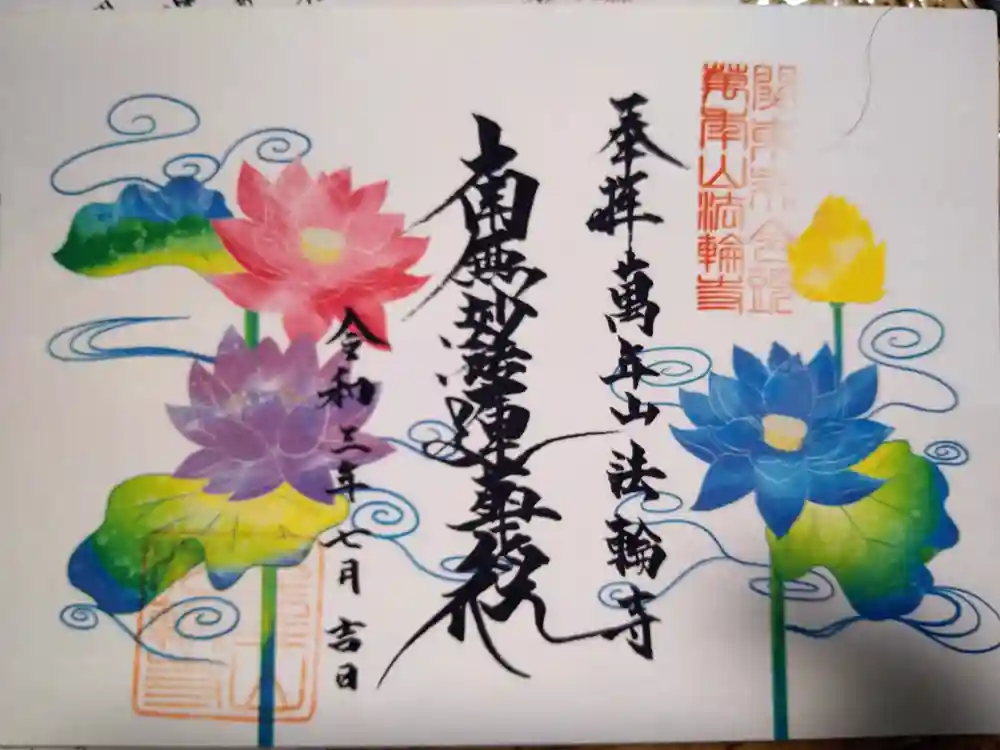 萬年山法輪寺
奉拝 萬年山法輪寺
南無妙法蓮華経
令和三年七月吉日